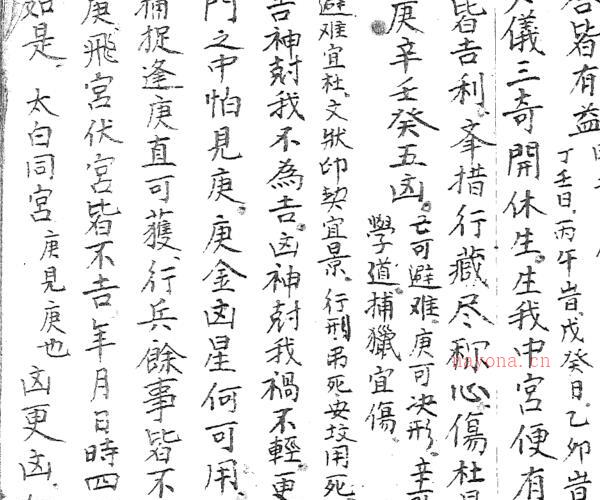 皆有益
丁壬日.丙午旹.戊癸日.乙卯旹
儀三奇開休生.生我中宮便有
皆吉利.夆措行藏尽称心傷杜
庚辛壬癸五凶.
亡可避难.庚可决形.辛
學道.捕獵宜傷.
避难宜杜.文狀印契宜景.行刑.吊死安坟用死
吉神尅我不為吉.凶神尅我禍不輕.更
門之中怕見庚.庚金凶星何可用.
捕捉逢庚直可獲.行兵餘事皆不
庚飛宮伏宮皆不吉年月日時四
如是.太白同宮
庚見庚也
凶更凶.
nayona.cn